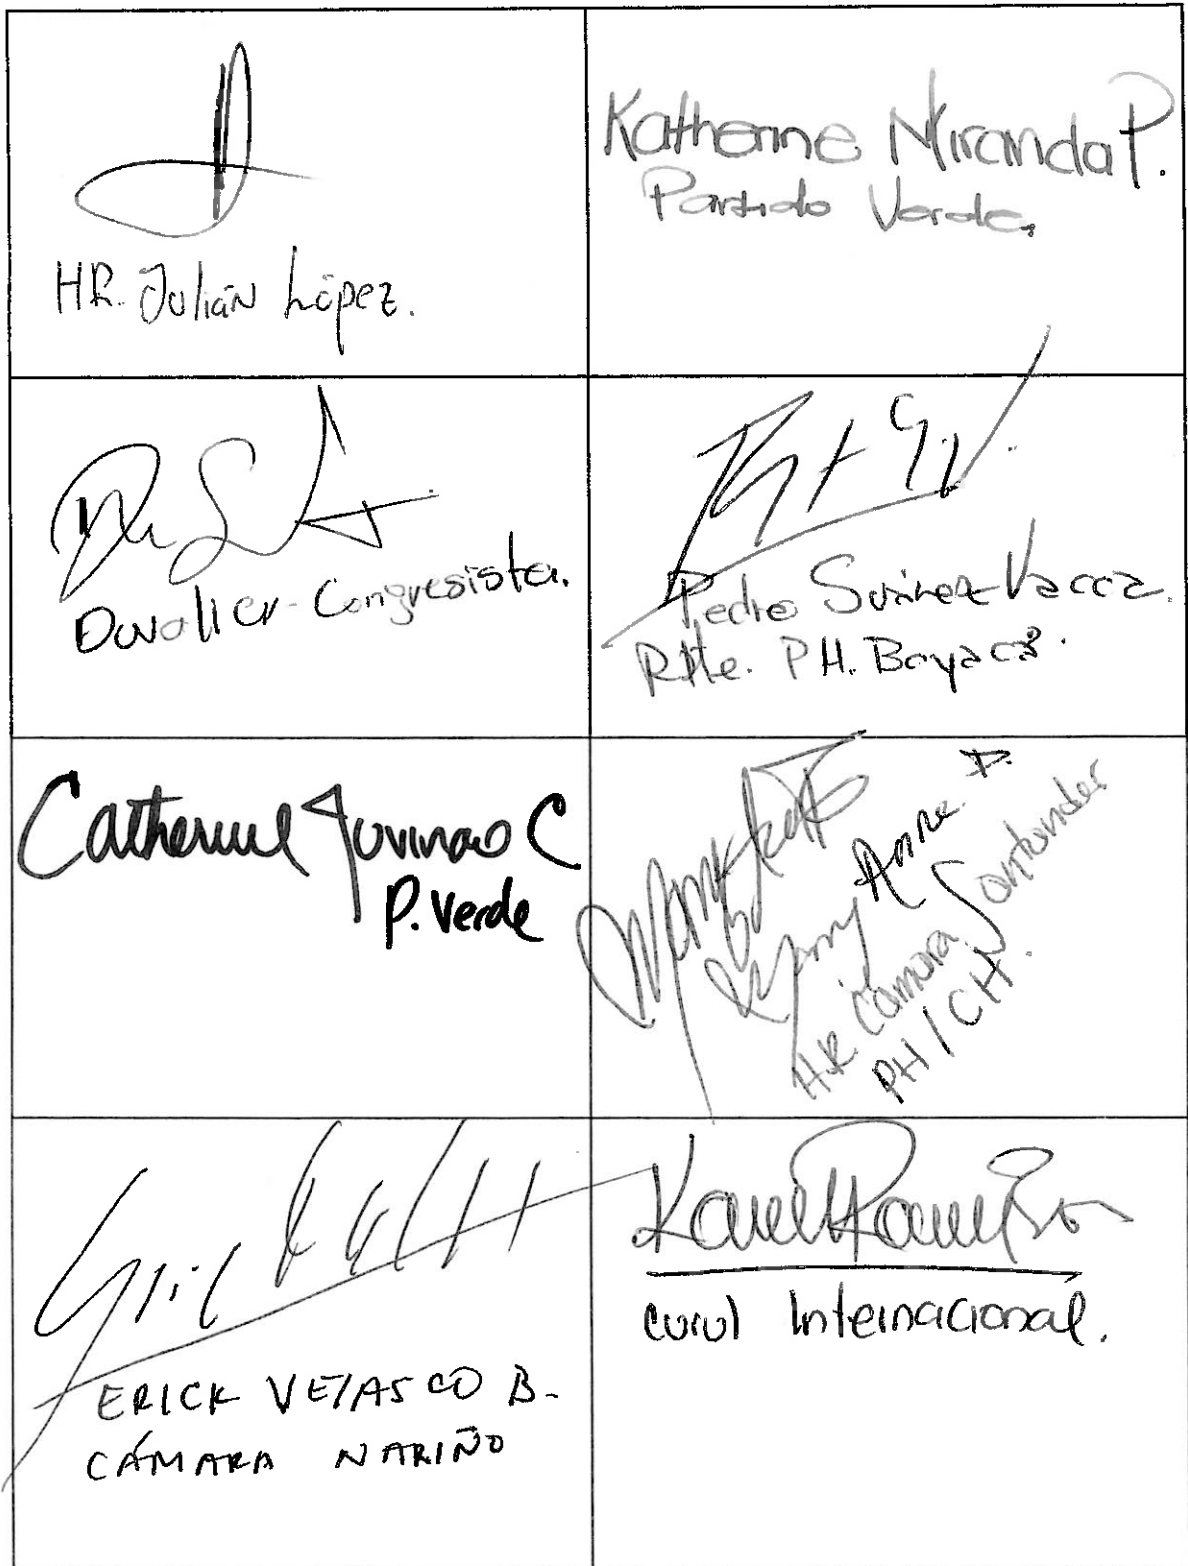 HR. Julián López.
Katherine Miranda P.
Partido Verde.
Duvalier Congresista.
Pedro Suárez Vacca.
Rpte. PH. Boyacá.
Catherine Juvinao C
P. Verde
Mary Anne. P.
HR Cámara Santander
PH / CH.
ERICK VELASCO B.
CÁMARA NARIÑO
Karmen Ramírez
curul Internacional.